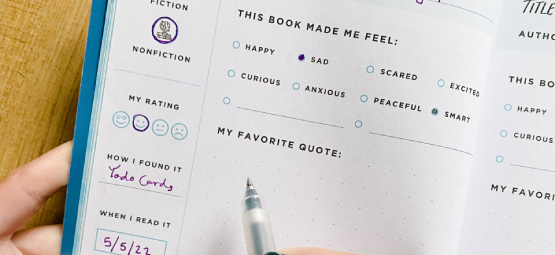 FICTION
NONFICTION
MY RATING
HOW I FOUND IT
Yodo Cards
WHEN I READ IT
5/5/22
THIS BOOK MADE ME FEEL:
HAPPY
SAD
SCARED
EXCITED
CURIOUS
ANXIOUS
PEACEFUL
SMART
MY FAVORITE QUOTE:
TITLE
AUTHO
THIS BO
HAPPY
CURIOUS
MY FAVORI